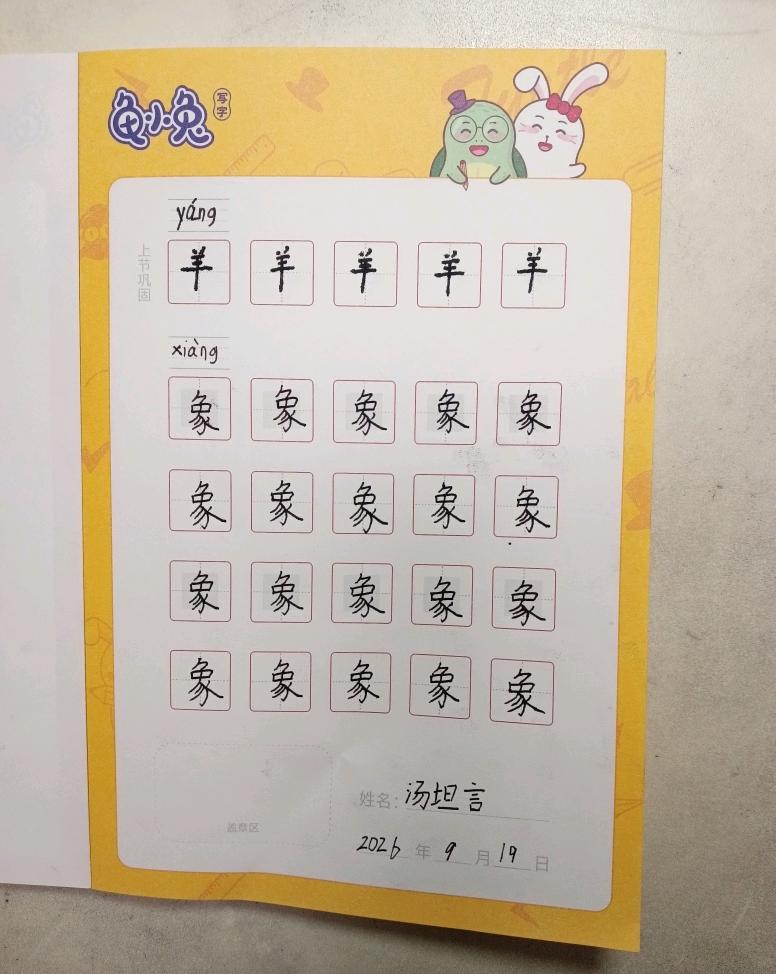 龟小兔
写字
yáng
上节巩固
羊 羊 羊 羊 羊
xiàng
象 象 象 象 象
象 象 象 象 象
象 象 象 象 象
象 象 象 象 象
姓名: 汤坦言
盖章区
2026 年 9 月 19 日